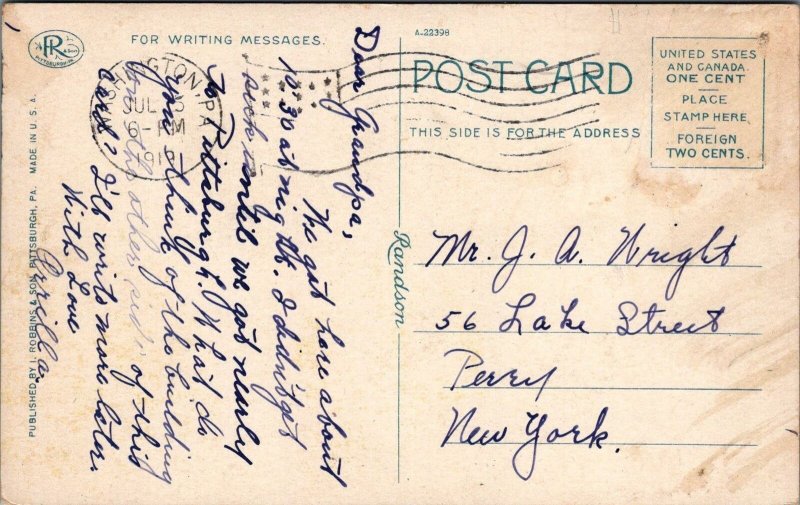 PR
PITTSBURGH, PA.
FOR WRITING MESSAGES.
A-22398
POST CARD
THIS SIDE IS FOR THE ADDRESS
UNITED STATES
AND CANADA
ONE CENT
PLACE
STAMP HERE
FOREIGN
TWO CENTS.
JUL
6-PM
PA
Dear Grandpa,
We got here about
10:30 at night. I didn't get
sick until we got nearly
to Pittsburgh. What do
you think of the building
on the other side of this
card? I'll write more later.
With Love
Randson
Mr. J. A. Wright
56 Lake Street
Perry
New York.
PUBLISHED BY I. ROBBINS & SON, PITTSBURGH, PA. MADE IN U.S.A.